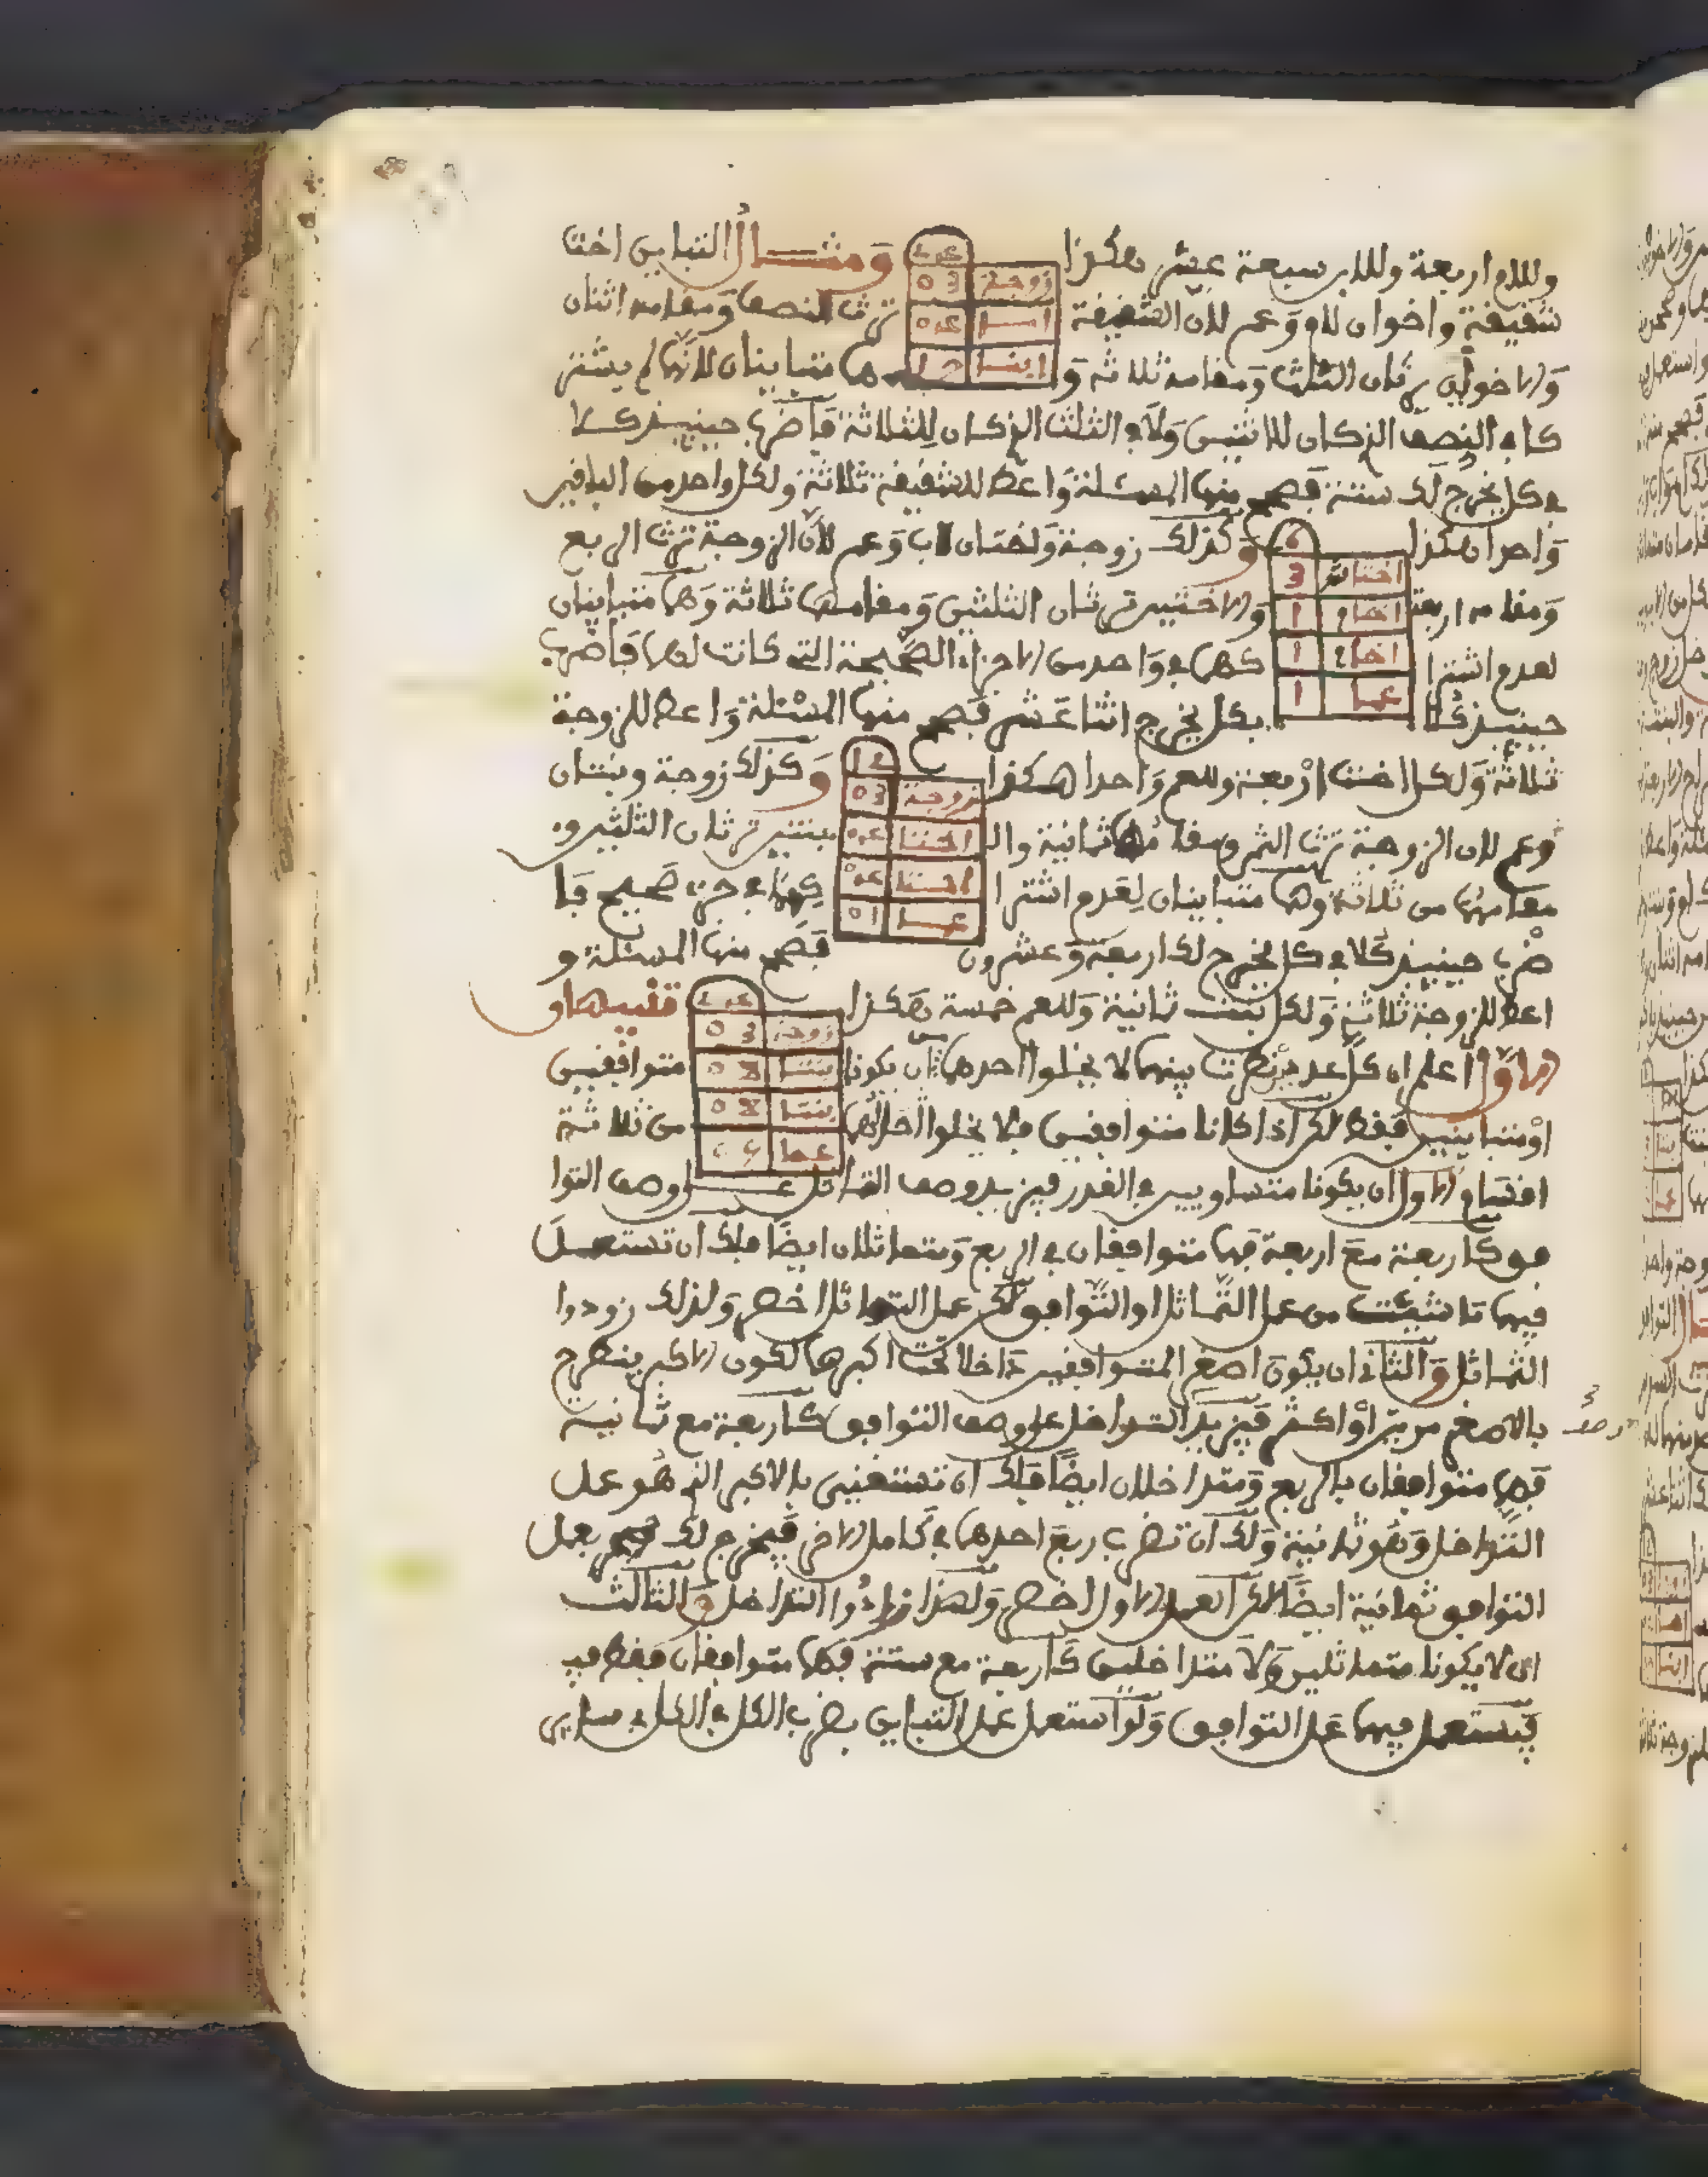 وللام اربعة وللابن سبعة عشر هكذا ومثال التباين اختا
شقيقة واخوان لام وعم لان الشقيقة ترث النصف ومقامه اثنان
والاخوان يرثان الثلث ومقامه ثلاثة وهما متباينان لانهما لم يشتر
كا في النصف الذي كان للاثنين ولا في الثلث الذي كان للثلاثة فاضرب حينيذ كلا
في كل يخرج لك ستة فصح منها المسئلة واعط للشقيقة ثلاثة ولكل واحد من الباقين
واحدا هكذا وكذلك زوجة واختان لاب وعم لان الزوجة ترث الربع
ومقامه اربعة والاختين ترثان الثلثين ومقامهما ثلاثة وهما متباينان
لعدم اشترا كهما في واحد من الاجزاء الصحيحة التي كانت لهما فاضرب
حينيذ كلا بكل يخرج اثنا عشر فصح منها المسئلة واعط للزوجة
ثلاثة ولكل اخت اربعة وللعم واحدا هكذا وكذلك زوجة وبنتان
وعم لان الزوجة ترث الثمن ومقامها ثمانية والبنتين ترثان الثلثين و
مقامهما من ثلاثة وهما متباينان لعدم اشترا كهما في جزء صحيح فا
ضرب حينيذ كلا في كل يخرج لك اربعة وعشرون فصح منها المسئلة و
اعط للزوجة ثلاثة ولكل بنت ثمانية وللعم خمسة هكذا تنبيهان
الاول اعلم ان كل عددين نظرت بينهما لا يخلوا احدهما ان يكونا متوافقين
او متباينين فقط لكن اذا كانا متوافقين فلا يخلوا من ثلاثة
اقسام الاول ان يكونا متساويين في القدر فيزيد وصف التماثل على وصف التوا
فق كاربعة مع اربعة فهما متوافقان في الربع ومتماثلان ايضا فلك ان تستعمل
فيهما ما شيت من عمل التماثل او التوافق لكن عمل التماثل اخصر ولذلك زودوا
التماثل والثاني ان يكون اصغر المتوافقين داخلا تحت اكبرهما لكون الاكبر ينطرح
بالاصغر مرتين او اكثر فيزيد التداخل على وصف التوافق كاربعة مع ثمانية
فهما متوافقان بالربع ومتداخلان ايضا فلك ان تستغنيي بالاكبر الذي هو عمل
التداخل وهو ثمانية ولك ان تضرب ربع احدهما في كامل الاخر فيخرج لك بعمل
التوافق ثمانية ايضا لكن العمل الاول اخصر ولهذا زادوا التداخل والثالث
ان لا يكونا متماثلين ولا متداخلين كاربعة مع ستة فهما متوافقان فقط
فيستعمل فيهما عمل التوافق ولو استعمل عمل التباين بضرب الكل في الكل في ساير
زوجة 03
12
زوجة 03
عما 01
6
عما 1
زوجة 03
بنتا 08
بنتا 08